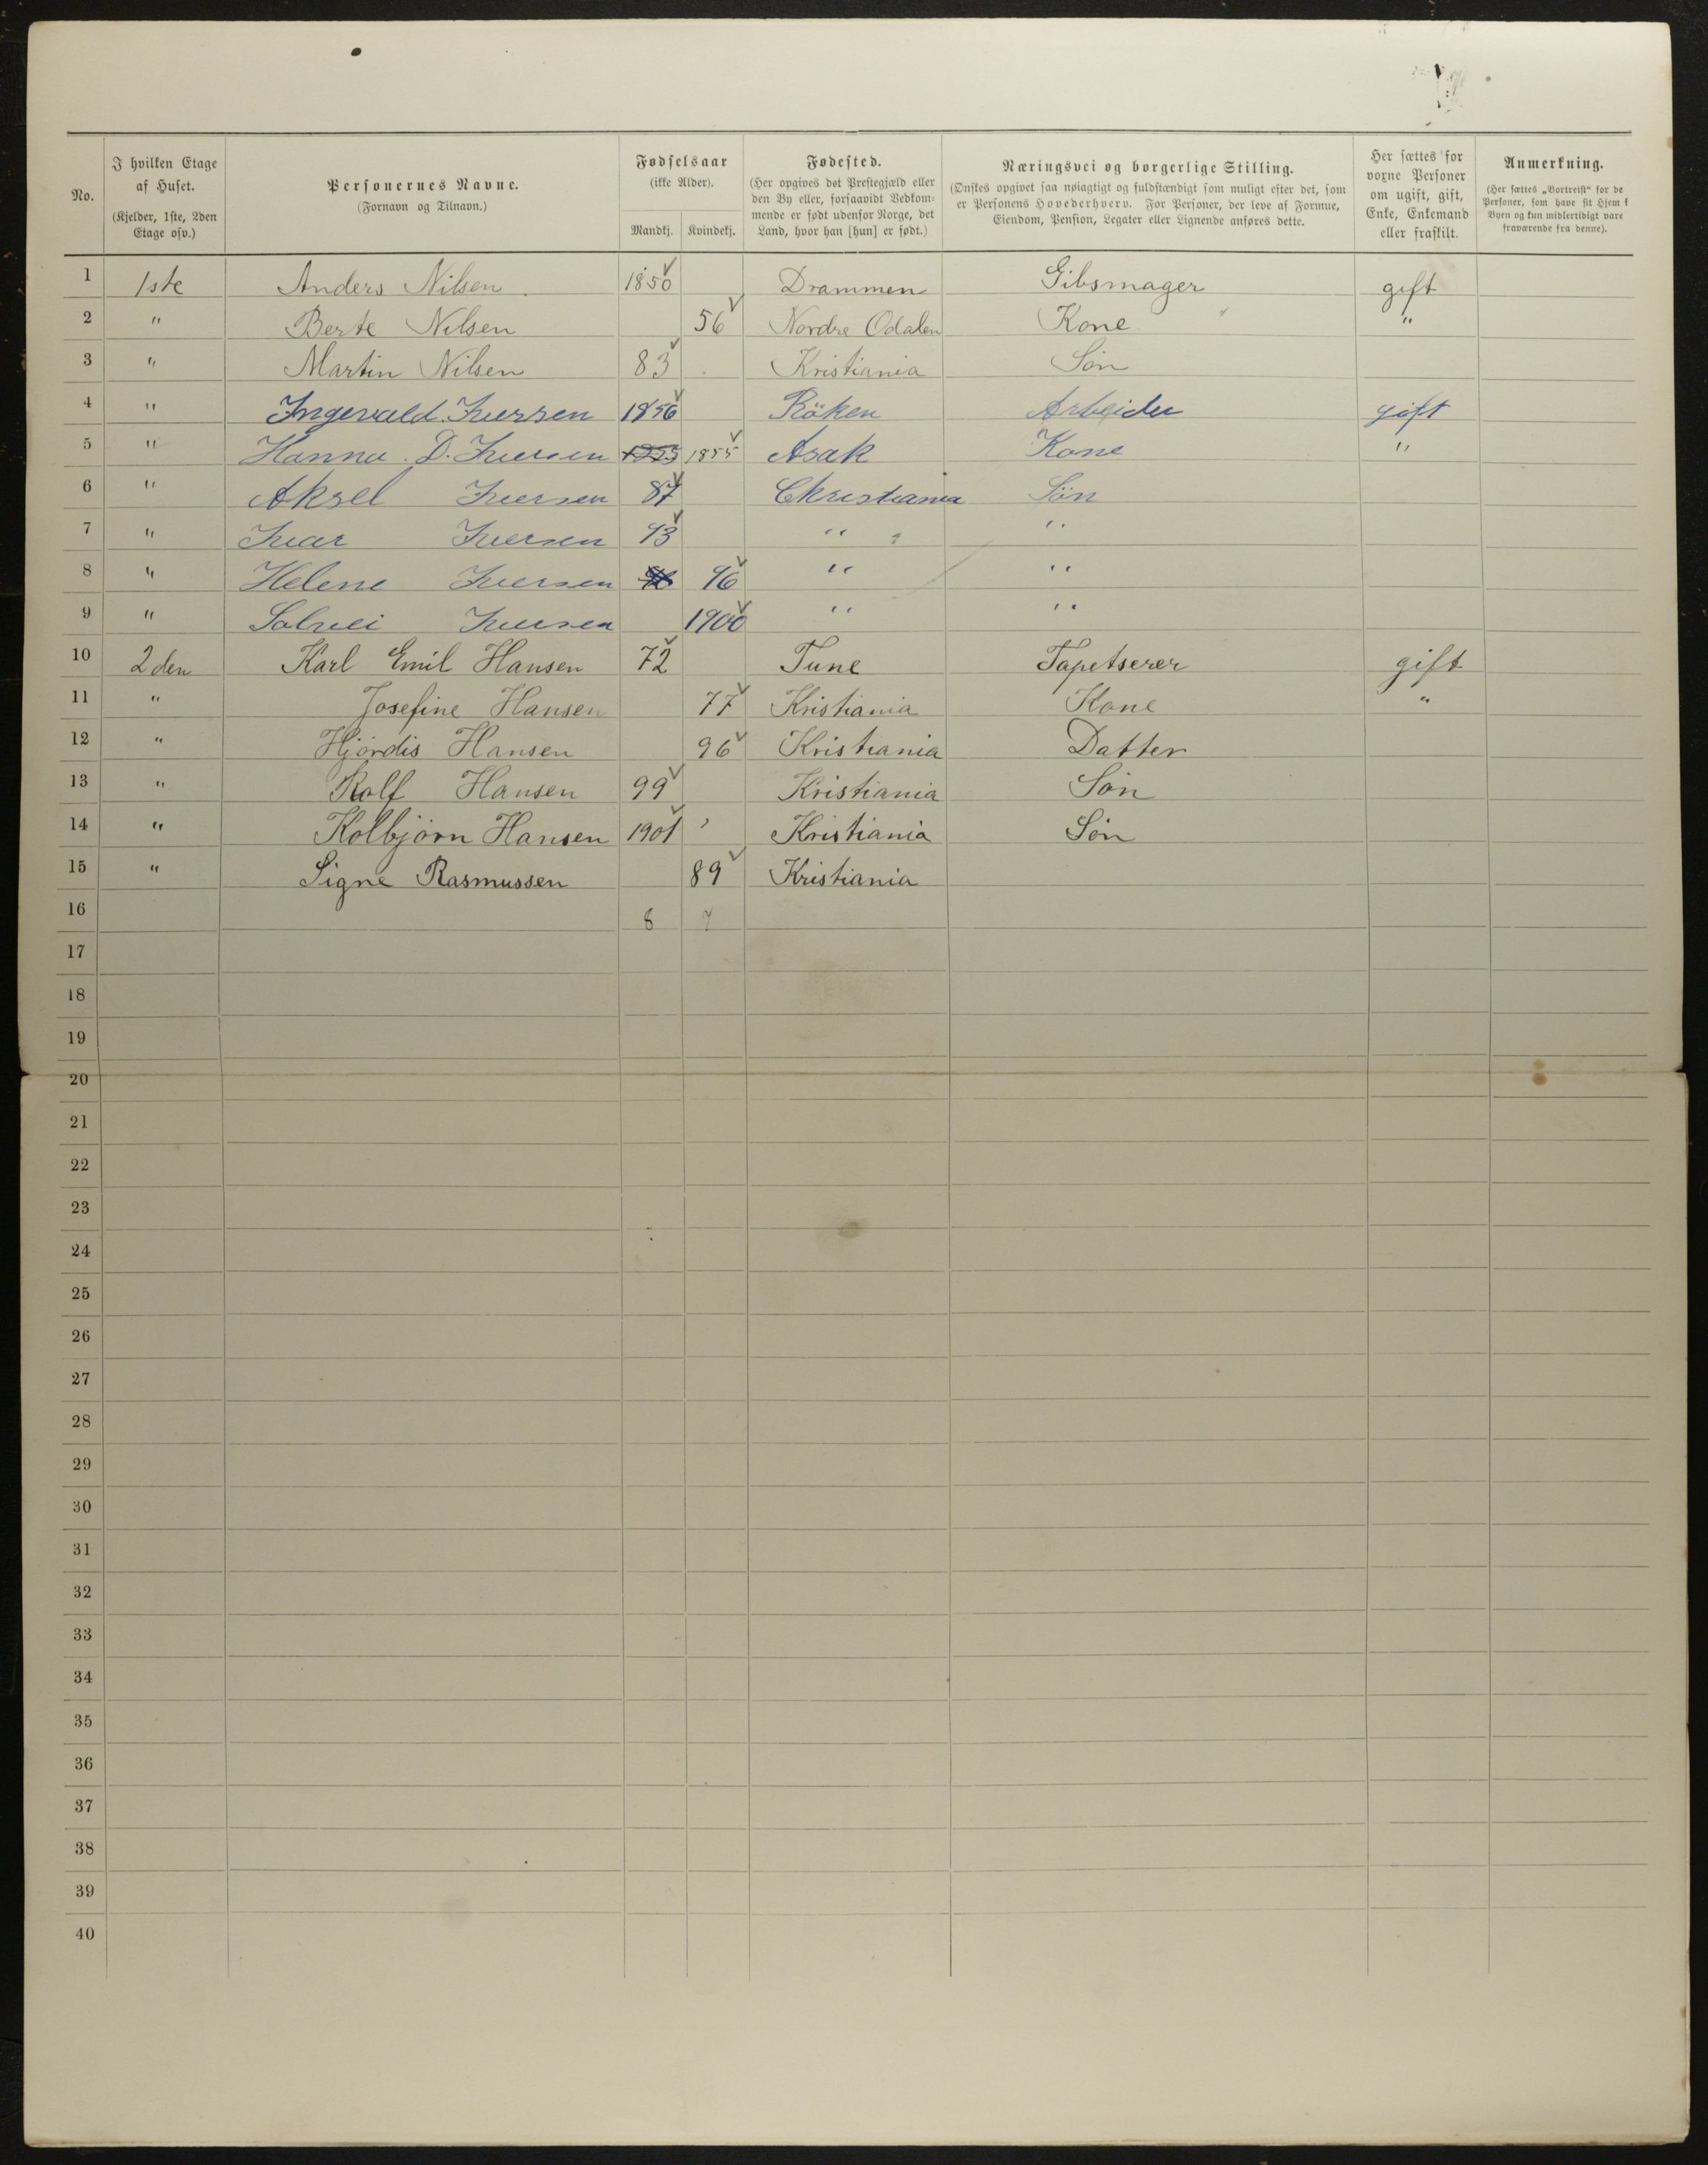 No.
I hvilken Etage af Huset. (Kjelder, 1ste, 2den Etage osv.)
Personernes Navne. (Fornavn og Tilnavn.)
Fødselsaar (ikke Alder).
Mandkj. Kvindekj.
Fødested. (Her opgives det Prestegjæld eller den By eller, forsaavidt Vedkommende er født udenfor Norge, det Land, hvor han [hun] er født.)
Næringsvei og borgerlige Stilling. (Ønskes opgivet saa nøiagtigt og fuldstændigt som muligt efter det, som er Personens Hovederhverv. For Personer, der leve af Formue, Eiendom, Pension, Legater eller Lignende anføres dette.
Her sættes for voxne Personer om ugift, gift, Enke, Enkemand eller fraskilt.
Anmerkning. (Her sættes „Bortreist“ for de Personer, som have sit Hjem i Byen og kun midlertidigt vare fraværende fra denne).
1 1ste Anders Nilsen 1850 Drammen Gibsmager gift
2 " Berte Nilsen 56 Nordre Odalen Kone "
3 " Martin Nilsen 83 Kristiania Søn
4 " Ingevald Iversen 1856 Röken Arbeider gift
5 " Hanna D. Iversen 1855 Asak Kone "
6 " Aksel Iversen 87 Christiania Sön
7 " Ivar Iversen 93 " "
8 " Helene Iversen 96 " "
9 " Solvei Iversen 1900 " "
10 2den Karl Emil Hansen 72 Tune Tapetserer gift
11 " Josefine Hansen 77 Kristiania Kone "
12 " Hjørdis Hansen 96 Kristiania Datter
13 " Rolf Hansen 99 Kristiania Søn
14 " Kolbjørn Hansen 1901 Kristiania Søn
15 " Signe Rasmussen 89 Kristiania
16 8 7
17
18
19
20
21
22
23
24
25
26
27
28
29
30
31
32
33
34
35
36
37
38
39
40